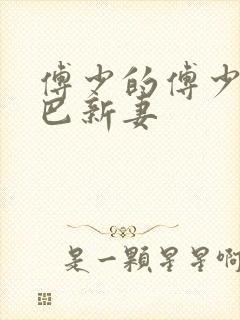 傅少的傅少
巴新妻
是一顆星星啊